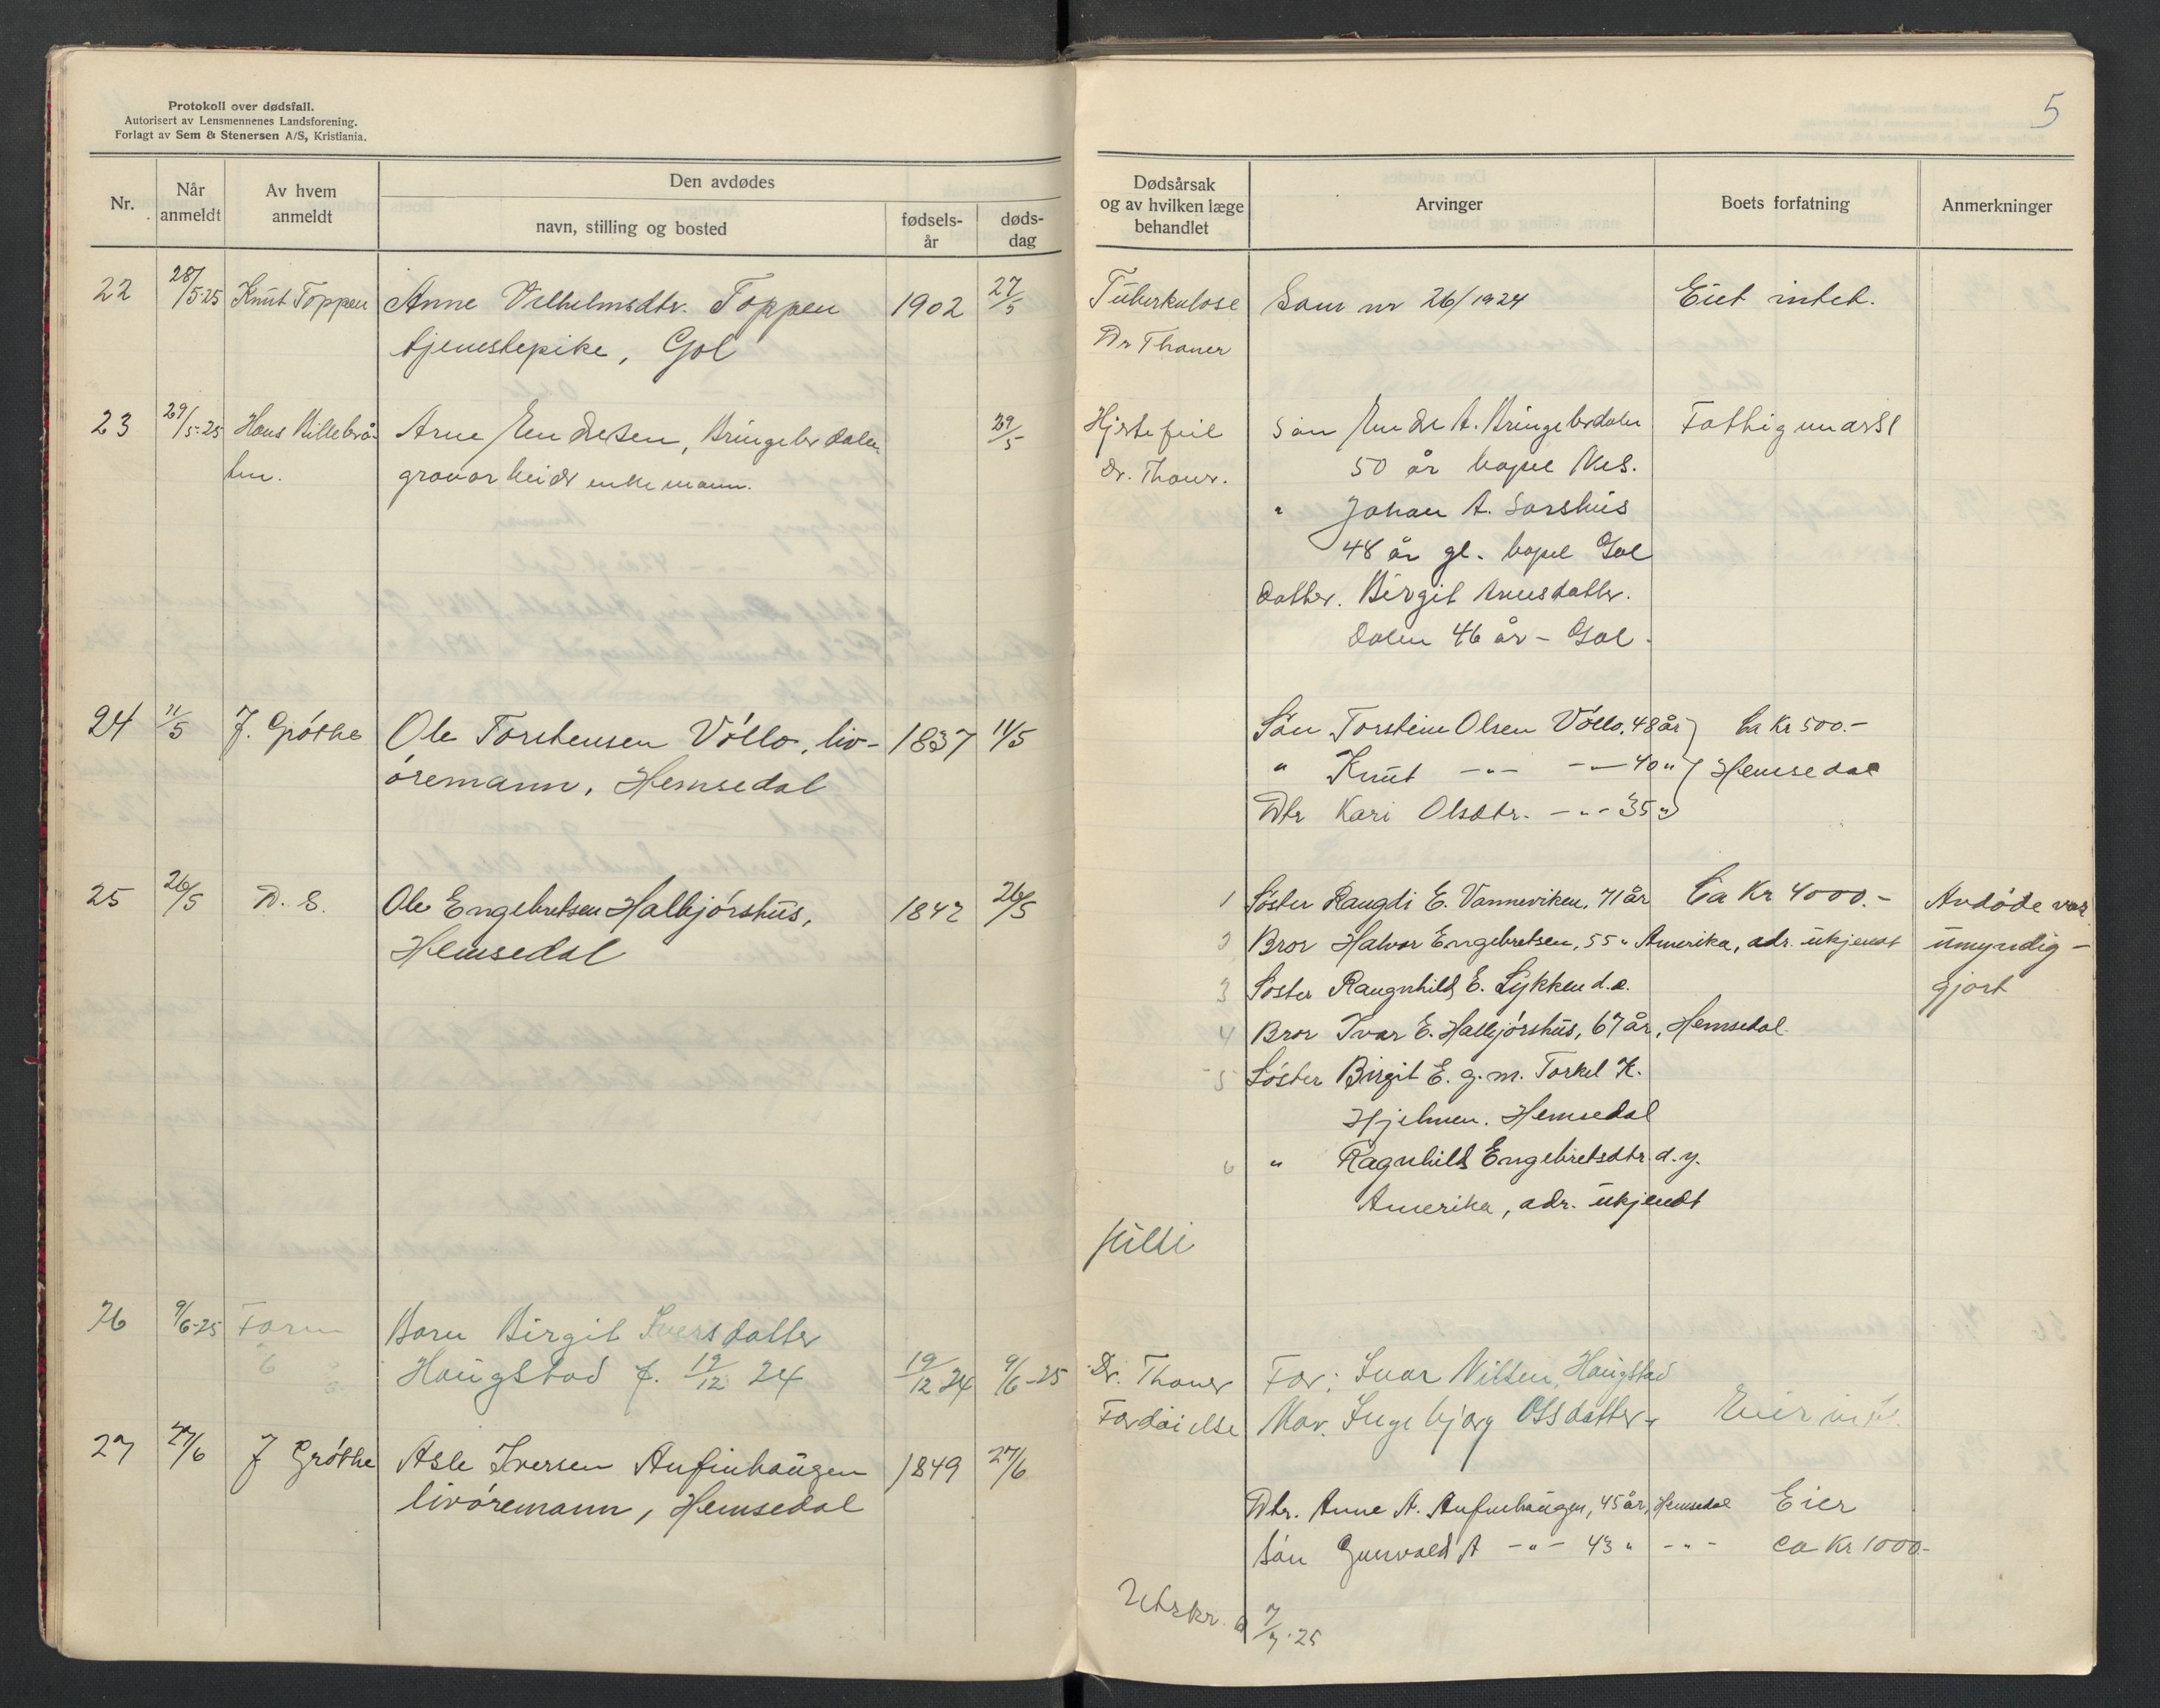 Protokoll over dødsfall.
Autorisert av Lensmennenes Landsforening.
Forlagt av Sem & Stenersen A/S, Kristiania.
Nr.
Når anmeldt
Av hvem anmeldt
Den avdødes
navn, stilling og bosted
fødsels-år
døds-dag
22 28/5-25 Knut Toppen Anne Vilhelmsdtr. Toppen 1902 27/5
tjenestepike, Gol
23 29/5-25 Hans Billebrå- Arne Endresen, Bringebrdalen 29/5
ten. gravarbeider enkemann.
24 11/5 J. Grøthe Ole Torstensen Vøllo, liv- 1837 11/5
øremann, Hemsedal
25 26/5 D. S. Ole Engebretsen Halbjørshus, 1842 26/5
Hemsedal
26 9/6-25 Faren Barn Birgit Iversdatter
Haugstad f. 19/12 24 19/12 24 9/6-25
27 27/6 J Grøthe Asle Iversen Anfinhaugen 1849 27/6
livøremann, Hemsedal
5
Dødsårsak
og av hvilken læge
behandlet
Arvinger
Boets forfatning
Anmerkninger
Tuberkulose Som nr 26/1924 Eiet intet.
Dr Thaner
Hjertefeil Søn Endre A. Bringebrdalen Fattigunderst
Dr. Thaner. 50 år bopel Nes.
" Johan A. Sarshus
48 år gl. bopel Gol
Datter. Birgit Arnesdatter.
Dalen 46 år - Gol.
Søn Torstein Olsen Vøllo, 48 år Ca Kr 500.-
" Knut -"- -"- 40 " Hemsedal
Dtr Kari Olsdtr. -"- 35 "
1 Søster Rangdi E. Vanneviken, 71 år Ca Kr 4000.- Avdøde var
2 Bror Halvor Engebretsen, 55 " Amerika, adr. ukjendt umyndig-
3 Søster Rangnhild E. Lykken d.e. gjort
4 Bror Ivar E. Halbjørshus, 67 år, Hemsedal
5 Søster Birgit E. g.m. Torkel K.
Hjelmen. Hemsedal
6 " Ragnhild Engebretsdtr. d.y.
Amerika, adr. ukjendt
Dr. Thaner Far: Ivar Nilsen Haugstad
Fordøielse Mor. Ingebjørg Olsdatter. Eier intet.
Dtr. Anne A. Anfinhaugen, 45 år, Hemsedal Eier
Søn Gunvald A -"- 43 " -"- ca Kr 1000.-
Utskr. 7/7-25